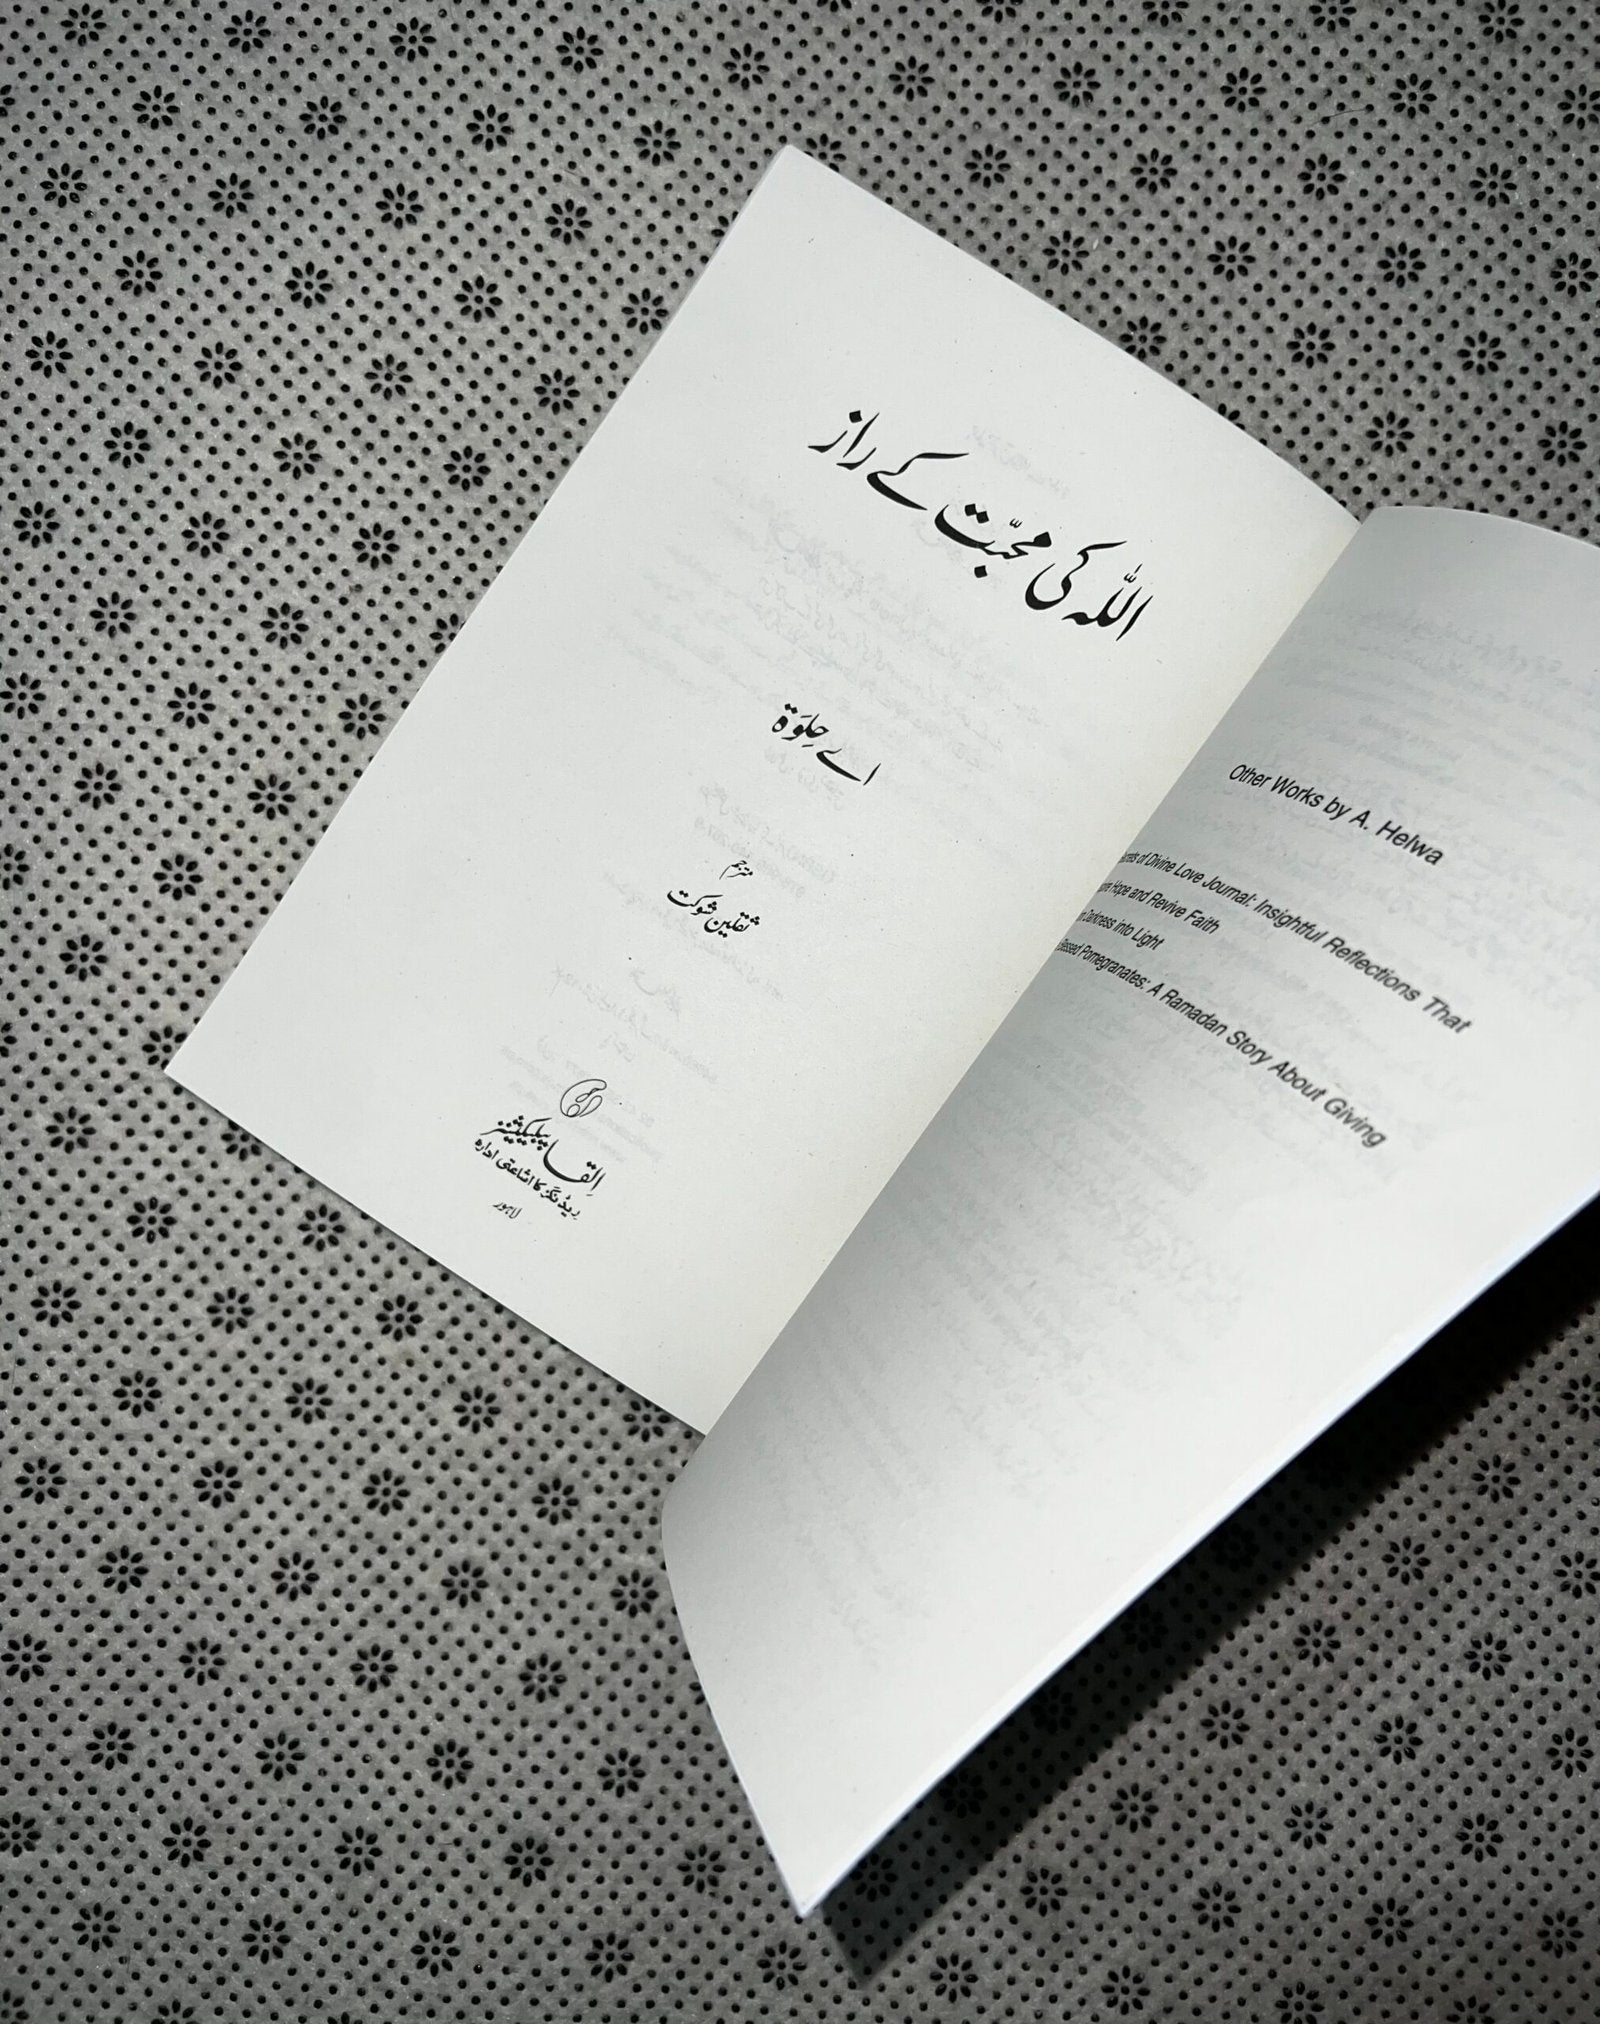 اللہ کی محبّت کے راز
اے حِلوَۃ
مترجم
ثقلین شوکت
اِلقا پبلیکیشنز
ریڈنگز کا اشاعتی ادارہ
لاہور
Other Works by A. Helwa
of Divine Love Journal: Insightful Reflections That
Hope and Revive Faith
Darkness into Light
Blessed Pomegranates: A Ramadan Story About Giving